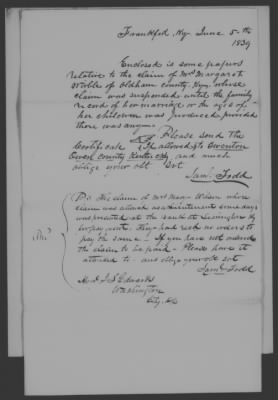 Frankfort, Ky. June 5th
1839
Enclosed is some papers
relative to the claim of Mrs Margaret
Noble of Oldham county, Kyn. whose
claim was suspended until the family
record of her marriage or the ages of
her children was produced provided
there was any. Please send the
Certificate if allowed to Owenton
Owen County Kentucky and much
oblige your obt Svt
Saml. Todd
P.S. The claim of Mrs Mary Wilson whose
claim was allowed some days
was presented at the bank at Lexington Ky
for payment. They had recd no orders to
pay the same. If you have not ordered
the claim to be paid - Please have it
attended to and oblige your obt svt
Saml Todd
Mr J. L. Edwards
Washington
City, &c